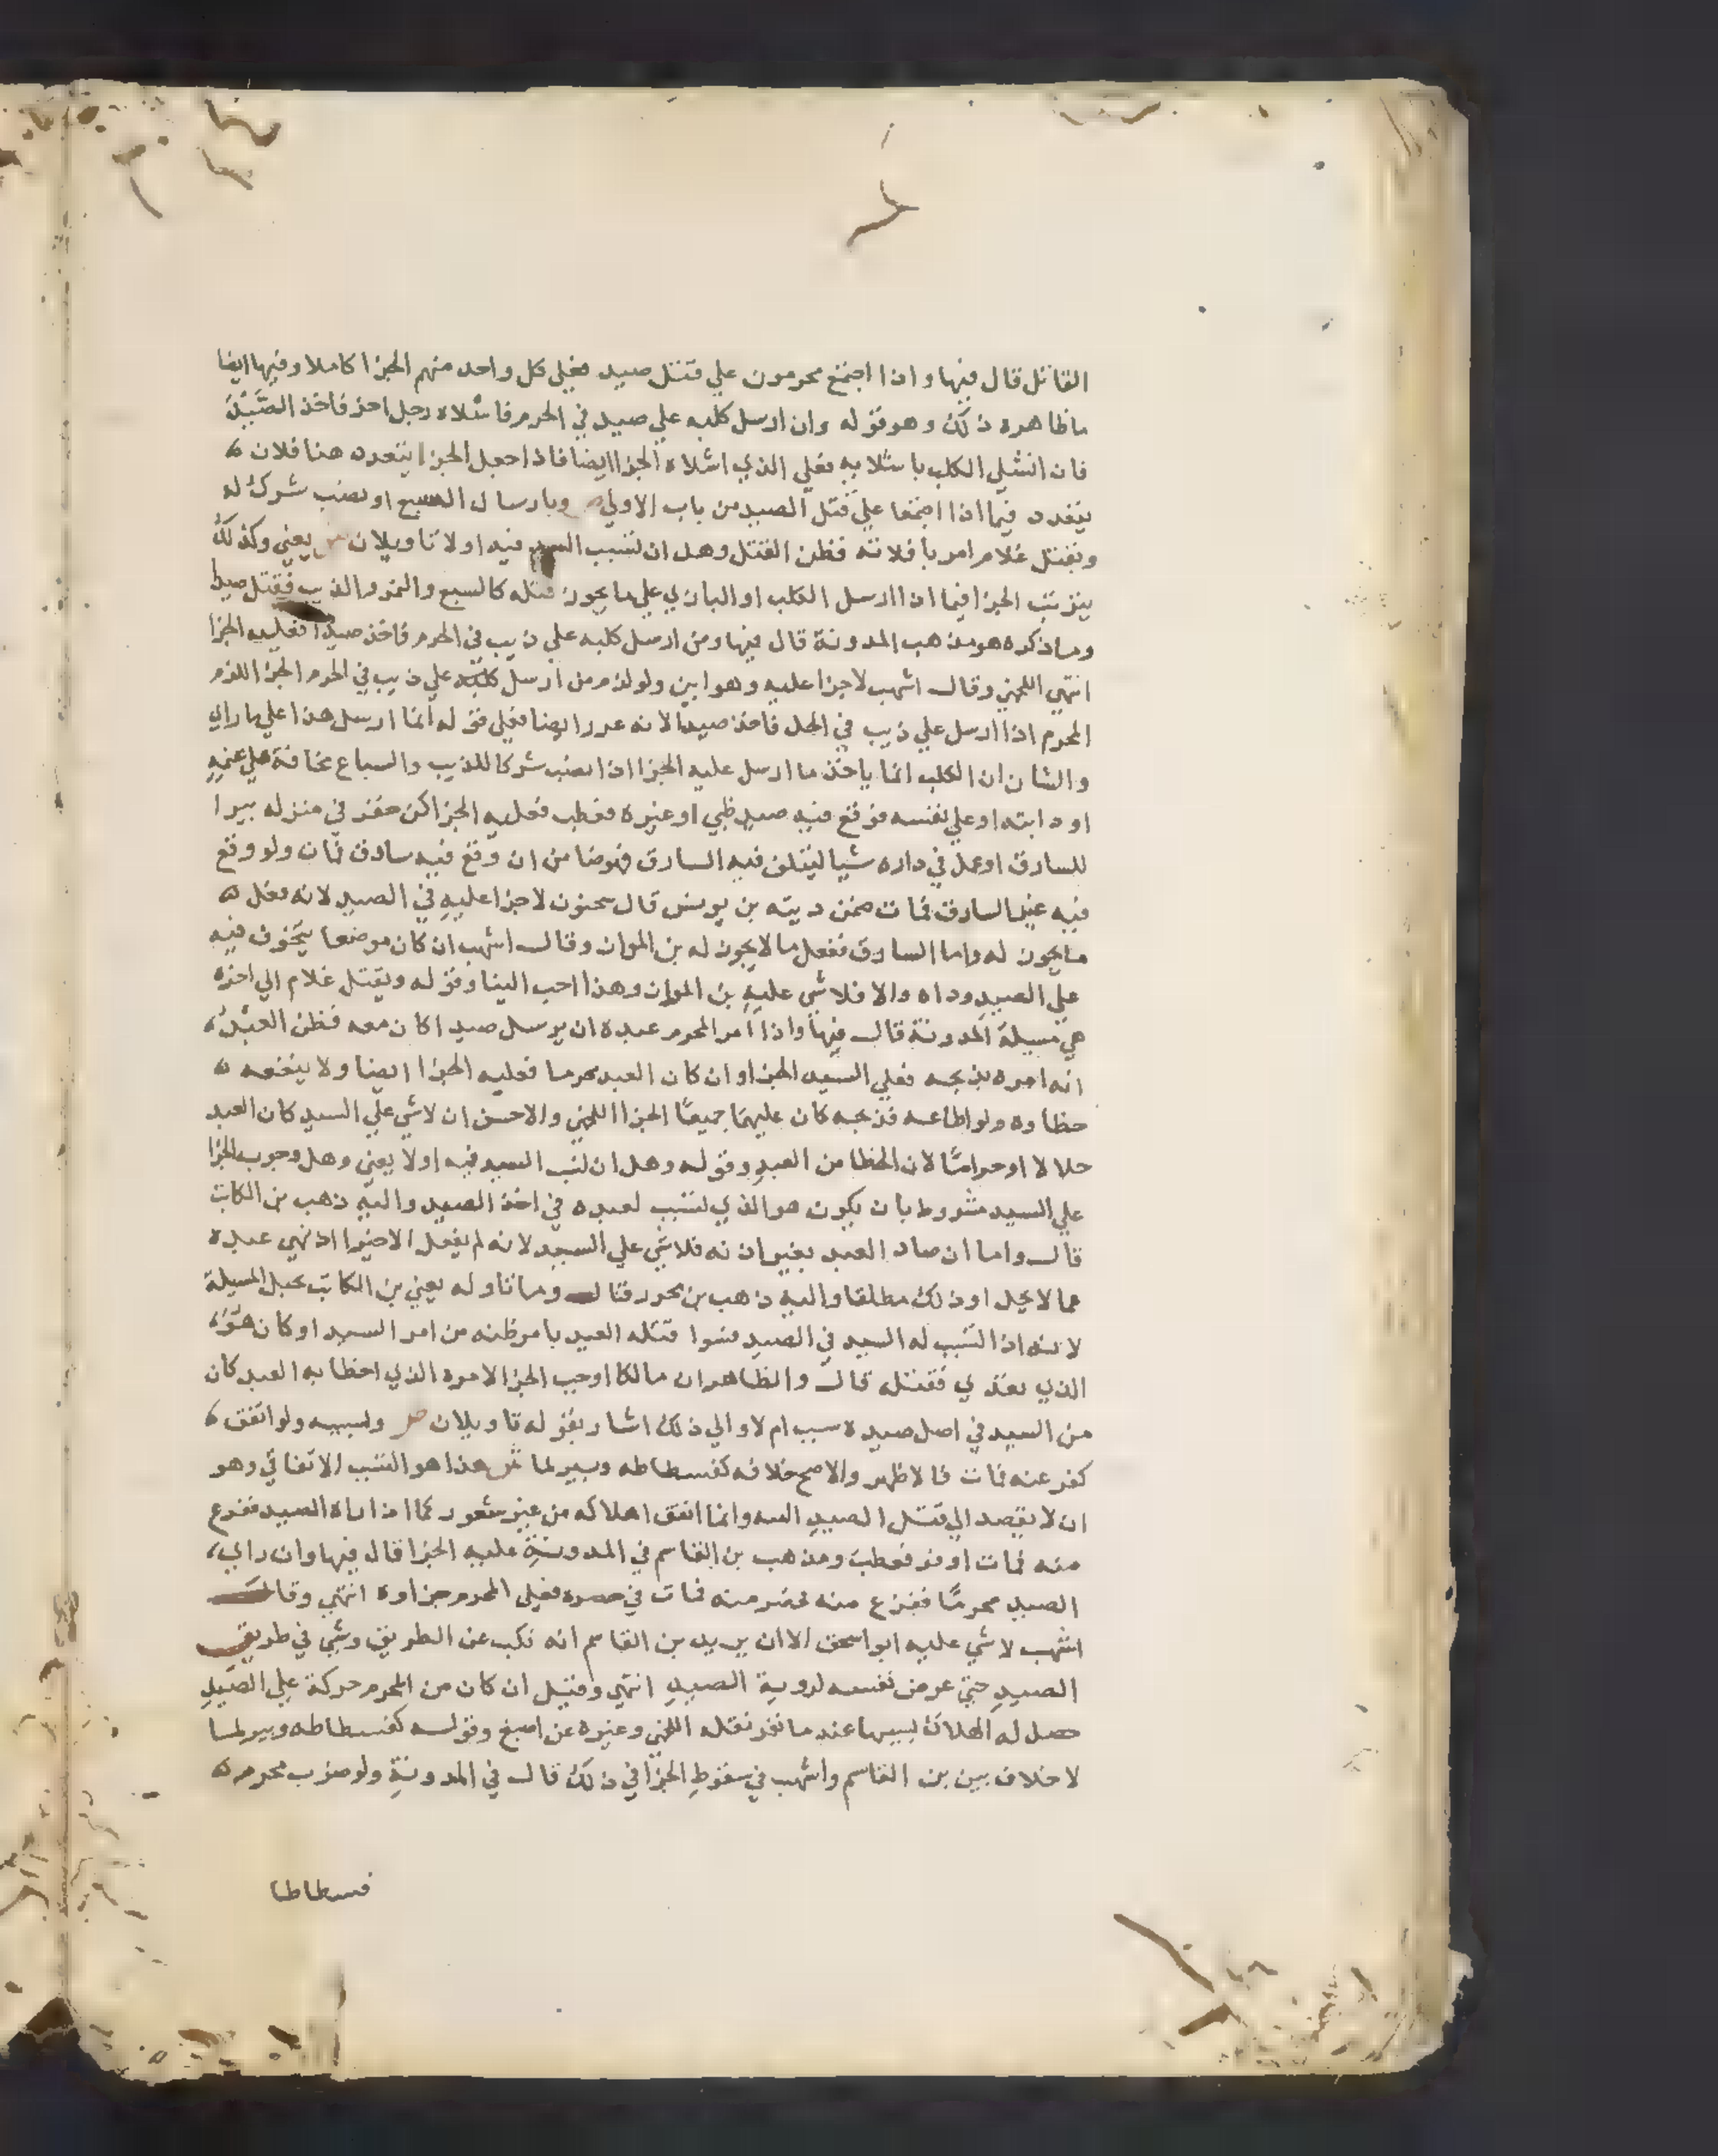 القاتل قال فيها واذا اجتمع محرمون علي قتل صيد فعلي كل واحد منهم الجزا كاملا وفيها ايضا
ما ظاهره ذلك وهو قوله وان ارسل كلبه علي صيد في الحرم فاشلاه رجل اخر فاخذ الصيد
فان انشلي الكلب باشلايه فعلي الذي اشلاه الجزا ايضا فاذا جعل الجزا يتعدد هنا فلان
يتعدد فيما اذا اجتمعا علي قتل الصيد من باب الاولي ص وبارسال السبع او نصب شرك له
وبقتل غلام امر بافلاته فظن القتل وهل ان تسبب السيد فيه او لا تاويلان ش يعني وكذلك
يترتب الجزا فيما اذا ارسل الكلب او البازي علي ما يجوز قتله كالسبع والنمر والذيب فقتل صيدا
وما ذكره هو مذهب المدونة قال فيها ومن ارسل كلبه علي ذيب في الحرم فاخذ صيدا فعليه الجزا
انتهي اللخمي وقال اشهب لاجزا عليه وهو ابين ولو لزم من ارسل كلبه علي ذيب في الحرم الجزا للزم
المحرم اذا ارسل علي ذيب في الحل فاخذ صيدا لانه غرر ايضا فعلي قوله انما ارسل هذا علي ما راي
والشان ان الكلب انما ياخذ ما ارسل عليه الجزا اذا نصب شركا للذيب والسباع مخافة علي غنمه
او دابته او علي نفسه فوقع فيه صيد ظبي او غيره فعطب فعليه الجزا كمن حفر في منزله بيرا
للسارق او عمل في داره شيا ليتلف فيه السارق فهو ضامن ان وقع فيه سارق فمات ولو وقع
فيه غير السارق فمات ضمن ديته بن يونس قال سحنون لاجزا عليه في الصيد لانه فعل
ما يجوز له واما السارق ففعل ما لا يجوز له بن المواز وقال اشهب ان كان موضعا يتخوف فيه
علي الصيد وداه والا فلا شي عليه بن المواز وهذا احب الينا وقوله وبقتل غلام الي اخره
هي مسيلة المدونة قال فيها واذا امر المحرم عبده ان يرسل صيدا كان معه فظن العبد
انه امره بذبحه فعلي السيد الجزا وان كان العبد محرما فعليه الجزا ايضا ولا ينفعه
خطاوه ولو اطاعه فذبحه كان عليهما جميعا الجزا اللخمي والاحسن ان لا شي علي السيد كان العبد
حلالا او حراما لان الخطا من العبد وقوله وهل ان تسبب السيد فيه او لا يعني وهل وجوب الجزا
علي السيد مشروط بان يكون هو الذي تسبب لعبده في اخذ الصيد واليه ذهب بن الكاتب
قال واما ان صاد العبد بغير اذنه فلا شي علي السيد لانه لم يفعل الا خيرا اذ نهي عبده
عما لا يحل او ذلك مطلقا واليه ذهب بن محرز فقال وما تاوله يعني بن الكاتب بحبل المسيلة
لانه اذا تسبب له السيد في الصيد فسوا قتله العبد بامر ظنه من امر السيد او كان هو
الذي تعدي فقتله قال والظاهر ان مالكا اوجب الجزا لامره الذي اخطا به العبد كان
من السيد في اصل صيده سبب ام لا والي ذلك اشار بقوله تاويلان ص وبسببه ولو اتفق
كفرعه فمات فالاظهر والاصح خلافه كفسطاطه وبير لما ش هذا هو التسبب الاتفاقي وهو
ان لا يقصد الي قتل الصيد البته وانما اتفق اهلاكه من غير شعور كما اذا راه الصيد ففزع
منه فمات او فر فعطب ومذهب بن القاسم في المدونة عليه الجزا قال فيها وان راي
الصيد محرما ففزع منه فحضر منه فمات في حضره فعلي المحرم جزاوه انتهي وقال
اشهب لا شي عليه ابو اسحق الا ان يريد بن القاسم انه نكب عن الطريق ومشي في طريق
الصيد حتي عرض نفسه لروية الصيد انتهي وقيل ان كان من المحرم حركة علي الصيد
حصل له الهلاك بسببها عند ما نفر نقله اللخمي وغيره عن اصبغ وقوله كفسطاطه وبير لما
لا خلاف بين بن القاسم واشهب في سقوط الجزا في ذلك قال في المدونة ولو ضرب محرم
فسطاطا